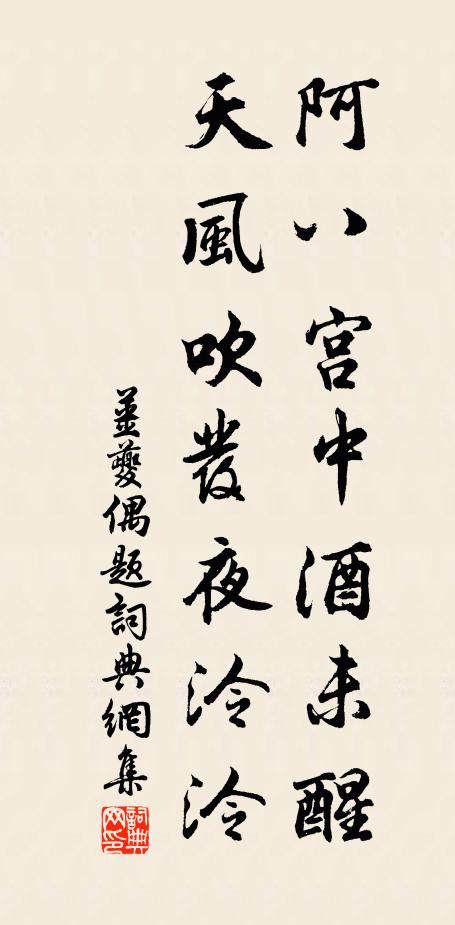 阿八宫中酒未醒
天風吹發夜泠泠
薑夔偶題詞典網集
詞典网印